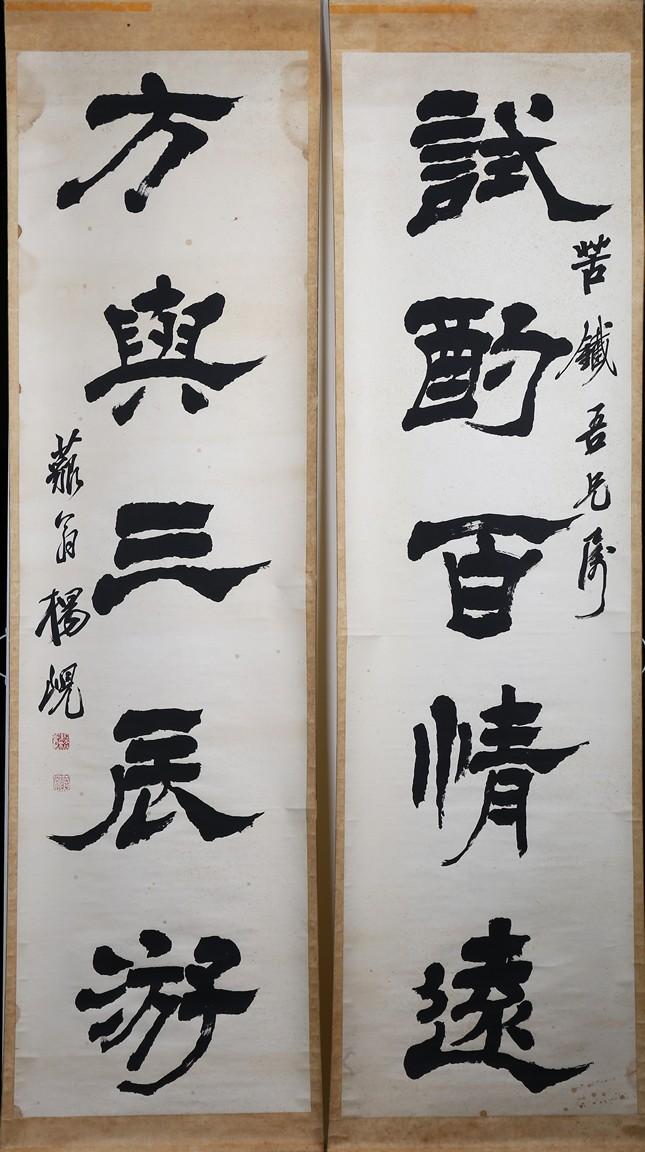 試酌百情遠
苦鐵吾兄属
方與三辰游
藐翁楊峴